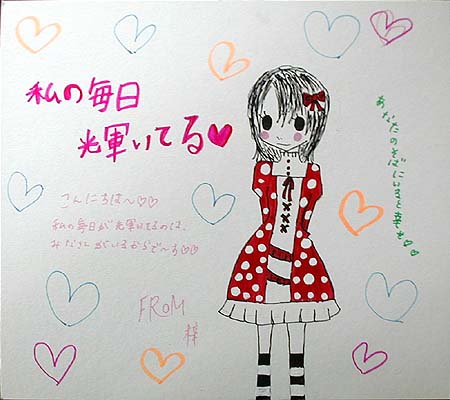 私の毎日
輝いてる♥
こんにちは〜♡♡
私の毎日が光輝いてるのは、
みなさんがいるからで〜す♡♡
FROM
梓
あなたのそばにいると幸せ♡